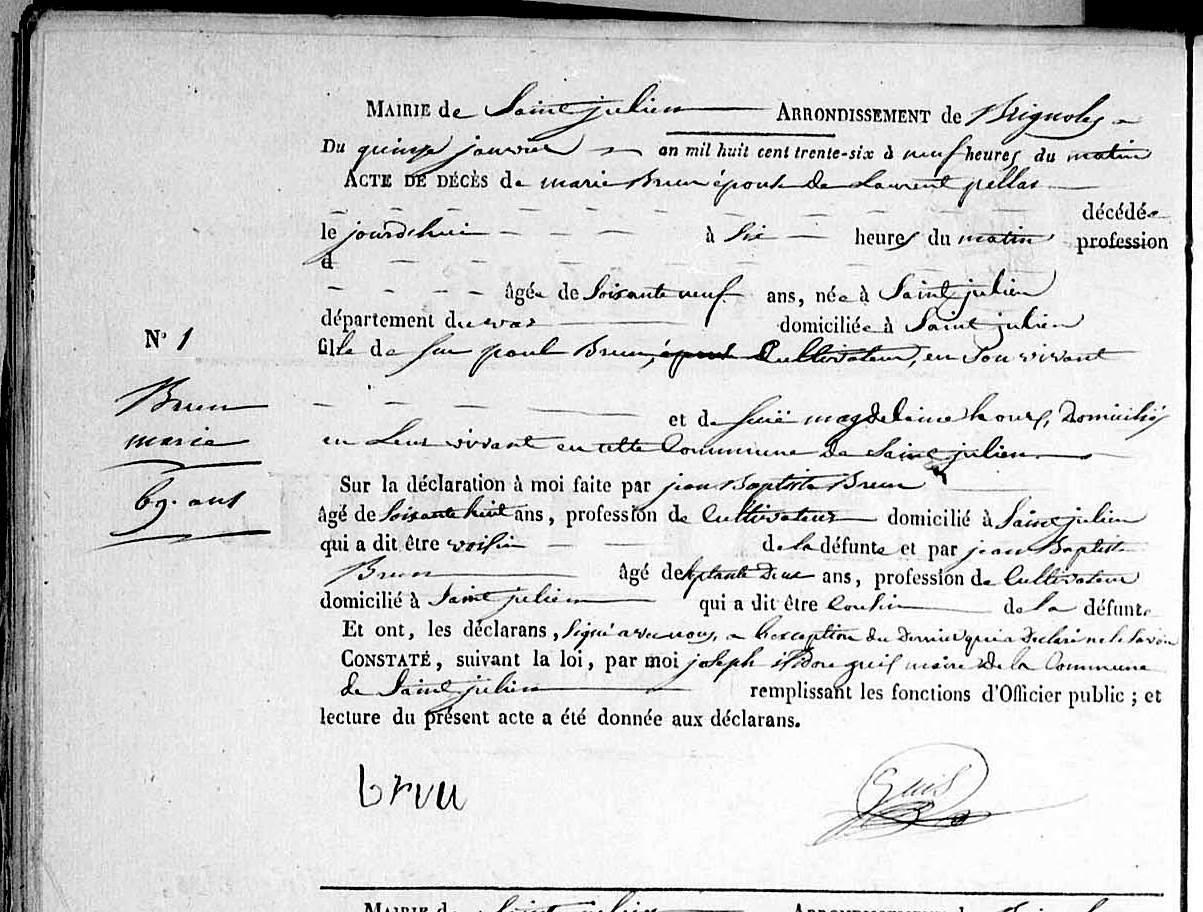 MAIRIE de Saint julien ARRONDISSEMENT de Brignoles
Du quinze janvier an mil huit cent trente-six à neuf heures du matin
ACTE DE DÉCÈS de marie Brun épouse de Laurent pellas
décédée
le jourdhui à Six heures du matin profession
d
âgée de Soixante neuf ans, née à Saint julien
département du var domiciliée à Saint julien
N° 1
fille de feu paul Brun, épouse Cultivateur, en Son vivant
Brun
et de feuë magdeleine Domiciliés
marie
en Leur vivant en cette Commune de Saint julien
69. ans
Sur la déclaration à moi faite par jean Baptiste Brun
âgé de Soixante huit ans, profession de Cultivateur domicilié à Saint julien
qui a dit être voisin de la défunte et par jean Baptiste
Brun âgé de Septante Deux ans, profession de Cultivateur
domicilié à Saint julien qui a dit être Cousin de la défunte
Et ont, les déclarans, Signé avec nous, a l'exception du Dernier qui a Déclaré ne le Savoir
CONSTATÉ, suivant la loi, par moi joseph isidore guis maire de la Commune
de Saint julien remplissant les fonctions d'Officier public ; et
lecture du présent acte a été donnée aux déclarans.
brun
Guis
MAIRIE de Saint julien ARRONDISSEMENT de